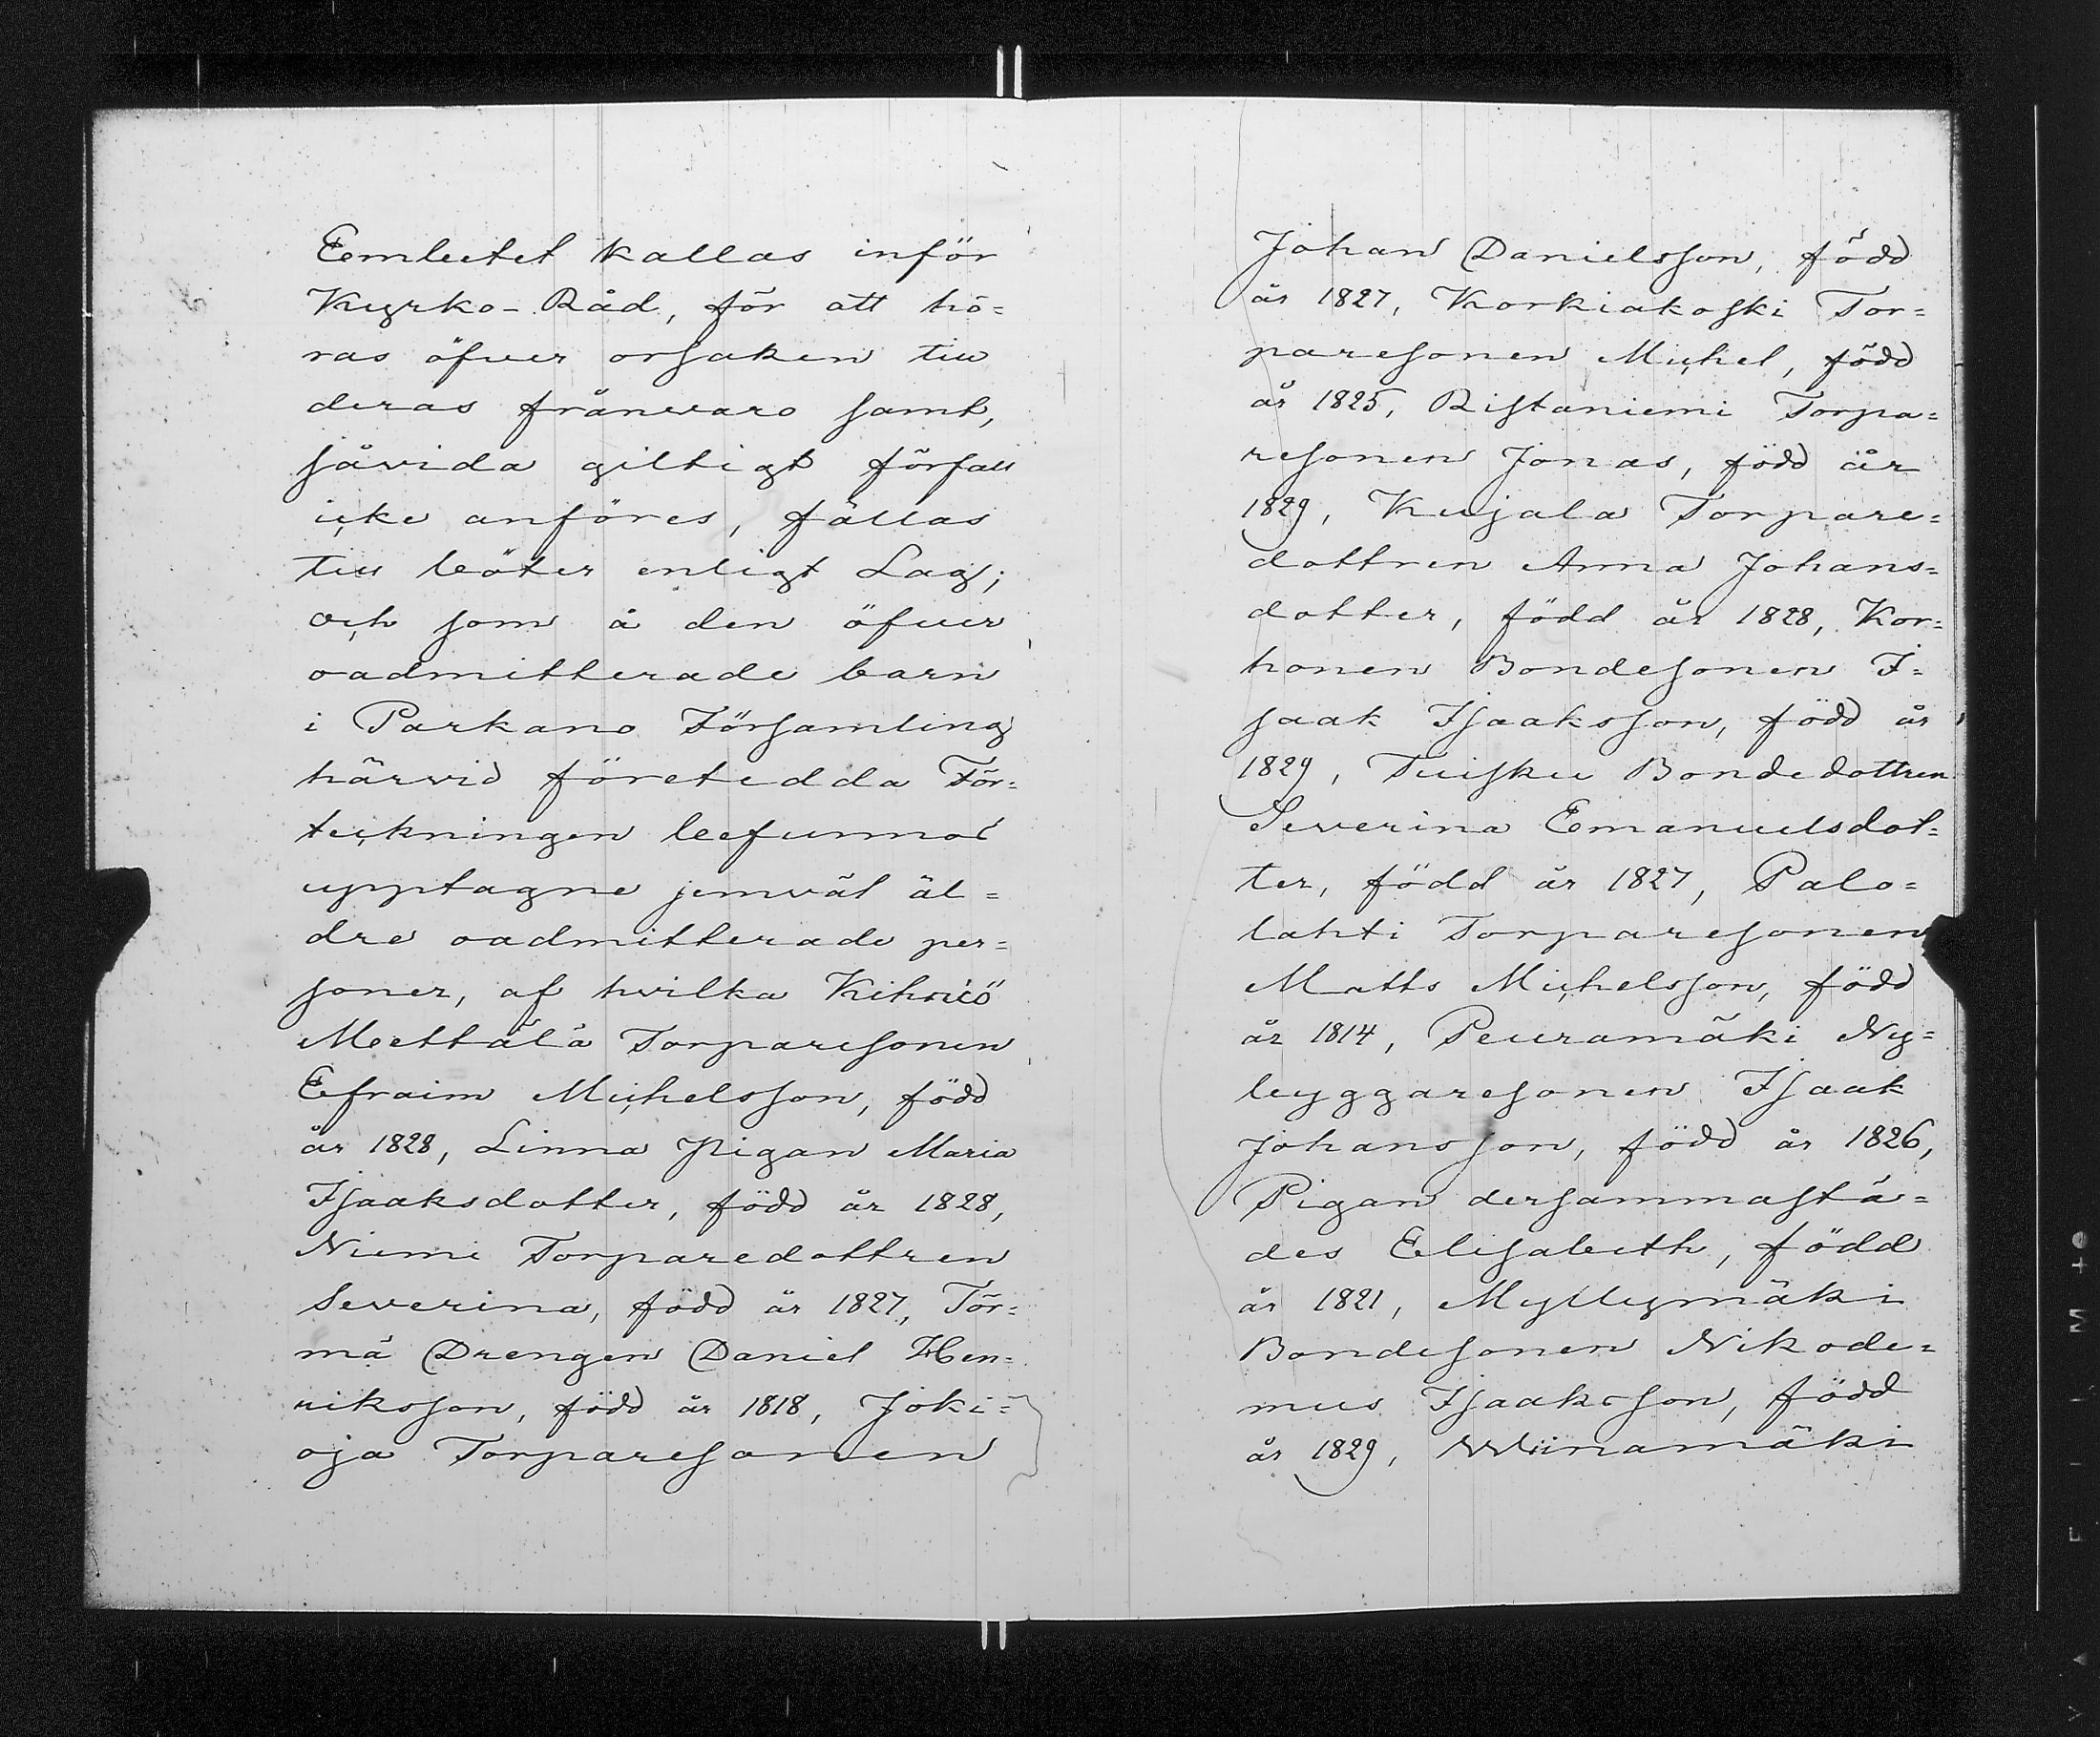 Embetet kallas inför
Kyrko-Råd, för att hö=
ras öfver orsaken till
deras frånvaro samt,
såvida giltigt förfall
icke anföres, fällas
till böter enligt Lag;
och som å den öfver
oadmitterade barn
i Parkano Församling
härvid företedda För=
teckningen befunnos
upptagne jemväl äl=
dre oadmitterade per=
soner, af hvilka Kihniö
Mettälä Torparesonen
Efraim Michelsson, född
år 1828, Linna Pigan Maria
Isaaksdotter, född år 1828,
Niemi Torparedottren
Severina, född år 1827, Tör=
mä Drengen Daniel Hen=
riksson, född år 1818, Joki=
oja Torparesonen
Johan Danielsson, född
år 1827, Korkiakoski Tor=
paresonen Michel, född
år 1825, Ristaniemi Torpa=
resonen Jonas, född år
1829, Kujala Torpare=
dottren Anna Johans=
dotter, född år 1828, Kor=
honen Bondesonen I=
saak Isaaksson, född år
1829, Tuisku Bondedottren
Severina Emanuelsdot=
ter, född år 1827, Palo=
lahti Torparesonen
Matts Michelsson, född
år 1814, Peuramäki Ny=
byggaresonen Isaak
Johansson, född år 1826,
Pigan dersammastä=
des Elisabeth, född
år 1821, Myllymäki
Bondesonen Nikode=
mus Isaaksson, född
år 1829, Wiinamäki